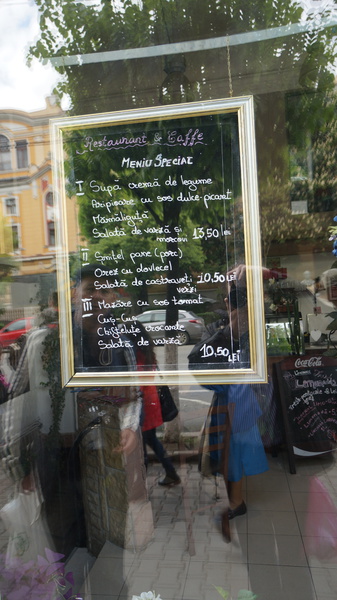 Restaurant & Caffe
MENIU SPECIAL
I Supă cremă de legume
Aripioare cu sos dulce-picant
Mămăliguță
Salată de varză și
morcovi 13,50 lei
II Șnițel pane (porc)
Orez cu dovlecel
Salată de castraveți 10,50 lei
verzi
III Mazăre cu sos tomat
Cuș-Cuș
Chifteluțe crocante
Salată de varză
10,50 LEI
Coca-Cola